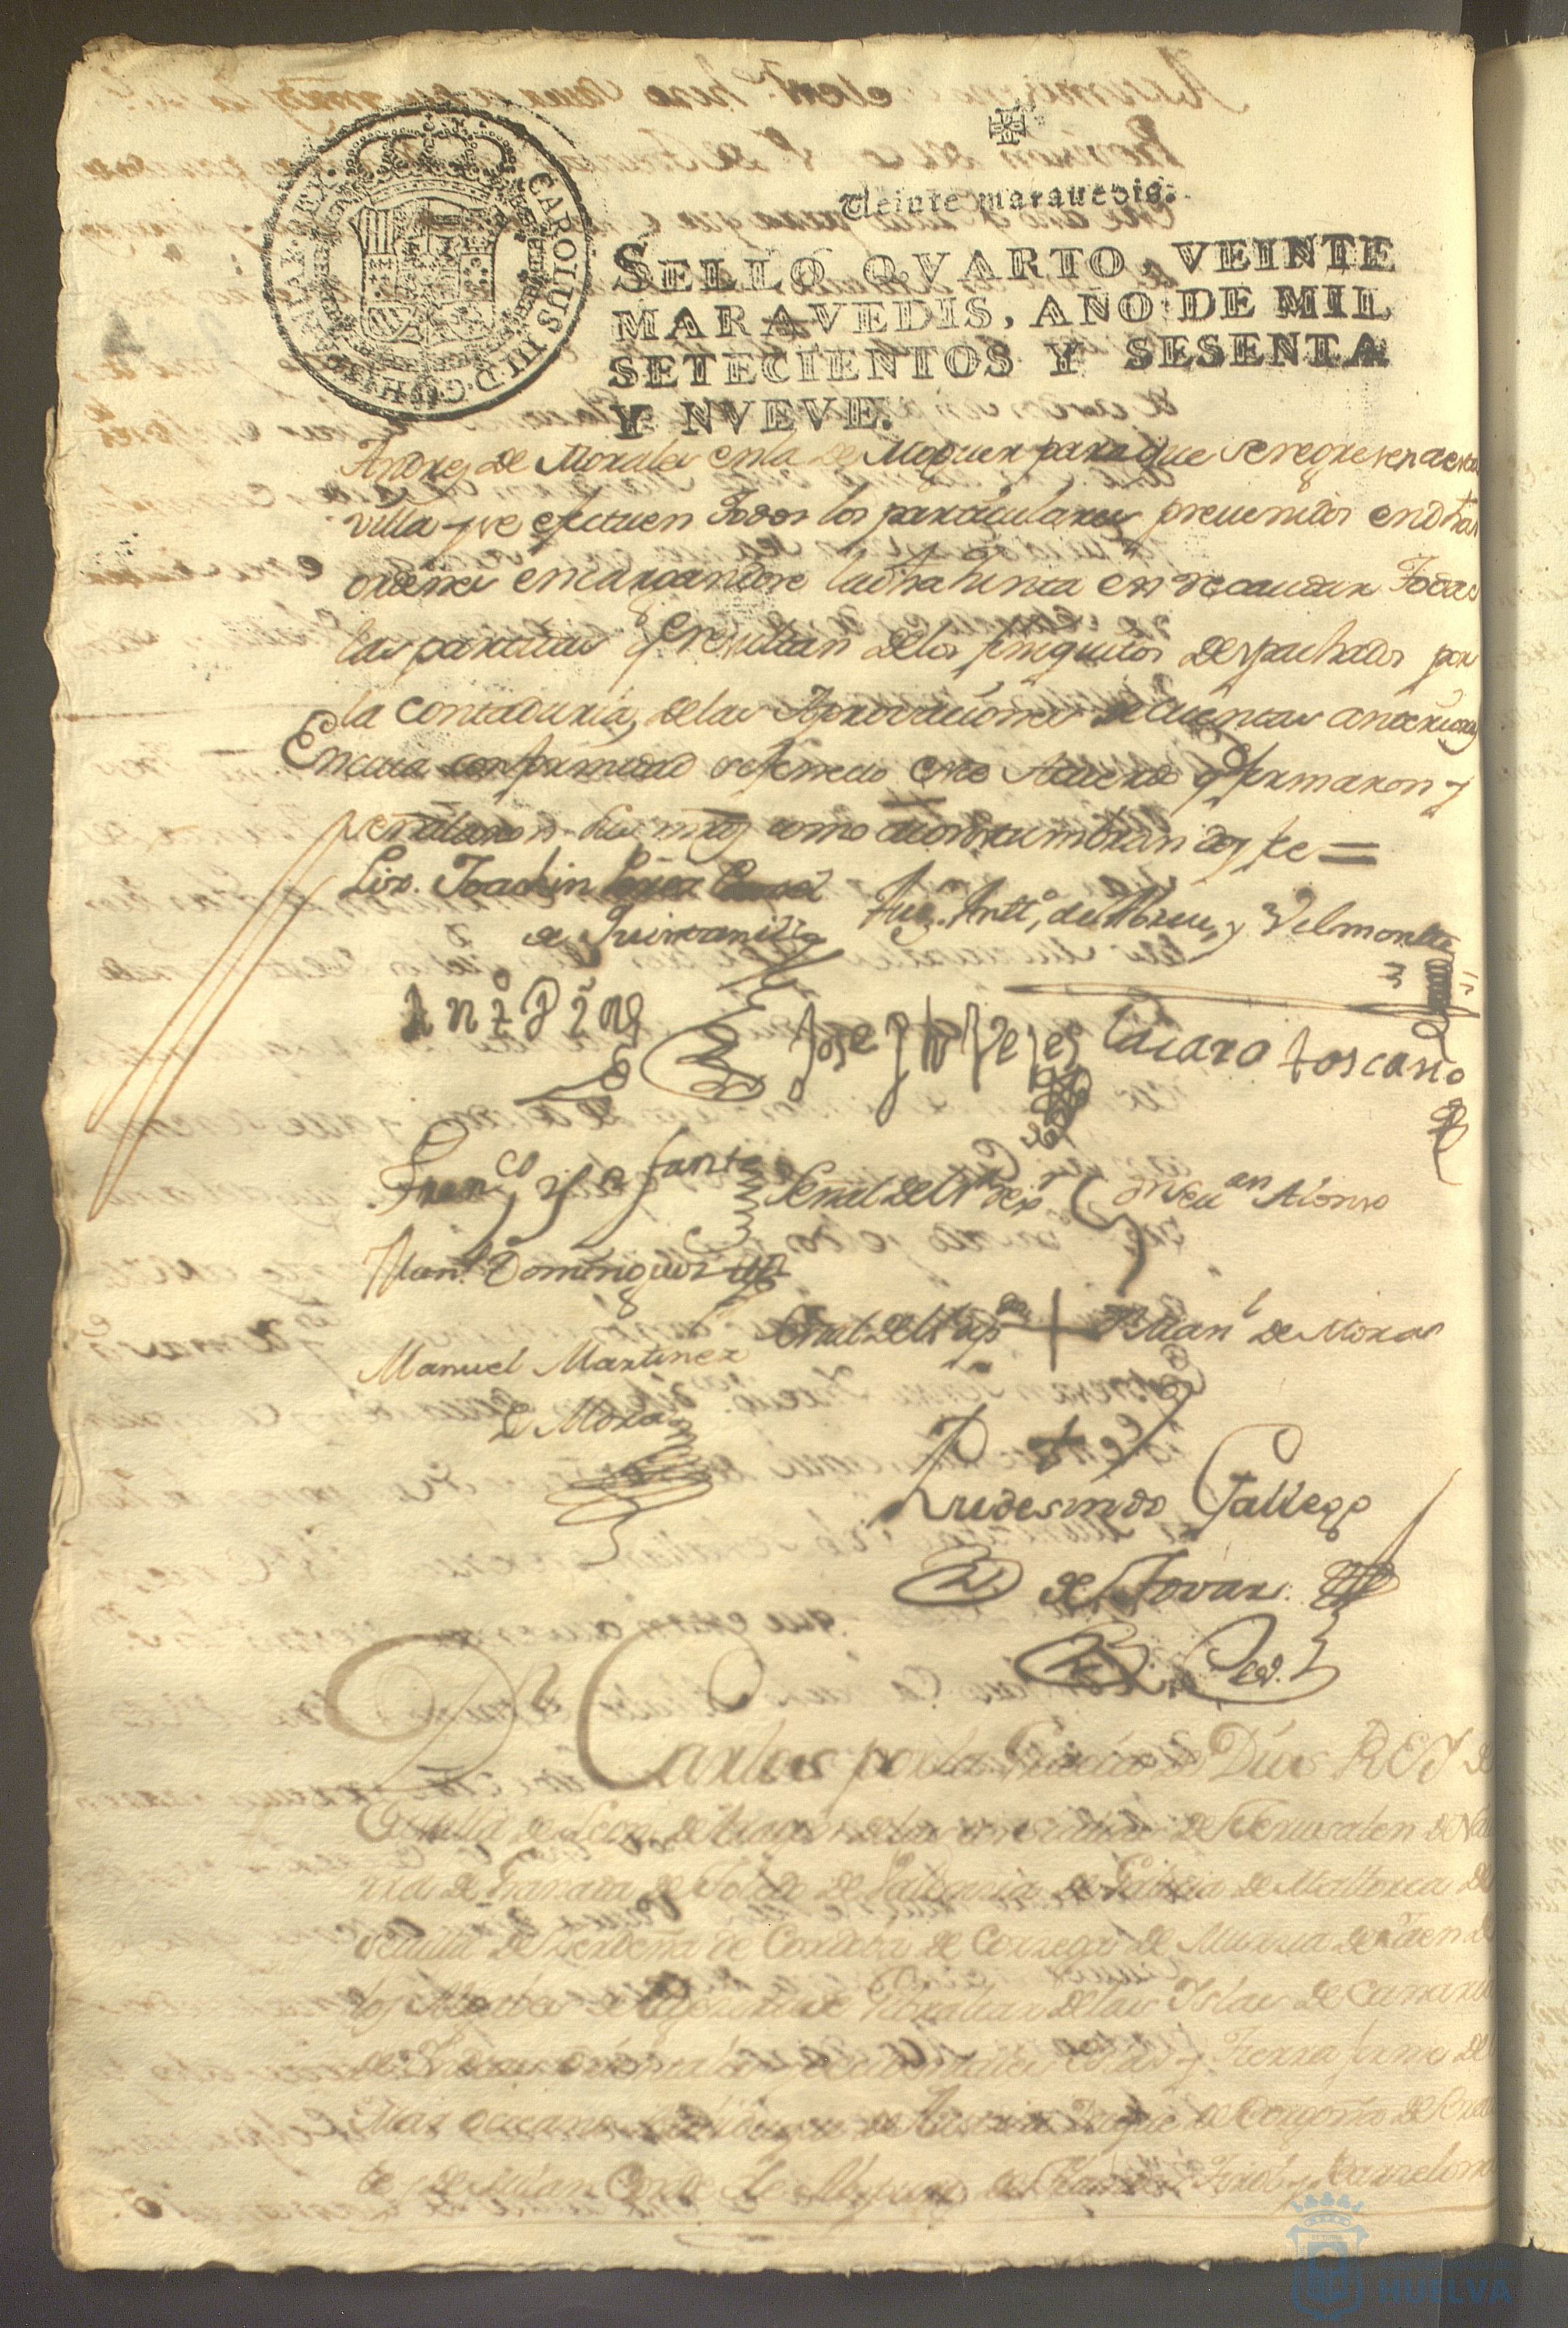 CAROLUS III D. G. HISPANIAR. REX.
Veinte maravedis.
SELLO QVARTO, VEINTE
MARAVEDIS, AÑO DE MIL
SETECIENTOS Y SESENTA
Y NVEVE.
Andres de Morales en la de Moguer para que se regresen a esta
villa y se efectuen Todos los particulares prevenidos en dhas
ordenes encargandose la dha Junta en recaudar Todas
las partidas q resultan de los finiquitos despachados por
la contaduria, de las Aprovaciones de cuentas anteriores
En cuia conformidad se fenecio este Acuerdo q firmaron y
señalaron sus mrds como acostumbran doy fe =
Liz. Joachin
de
Juo. Antto. de Abreu, y Velmonte
Jose
Lazaro toscano
Franco Ynfante
Señal del Sr
Alonso
Manl. Dominguez
Señal del Sr
Manl de Mora
Manuel Martinez
de Mora
Rudesindo Gallego
de Tovar.
D Carlos por la Gracia de Dios REY de
Castilla de Leon de Aragon de las dos Sicilias de Jerusalen de Nava
rra de Granada de Toledo de Valencia de Galicia de Mallorca de
Sevilla de Serdeña de Cordova de Corzega de Murcia de Jaen de
los Algarbes de Algeciras de Gibraltar de las Islas de Canaria
de las Indias orientales y occidentales Islas y Tierra firme del
Mar occeano Archiduque de Austria Duque de Borgoña de Braban
te y de Milan Conde de Abspurg de Flandes Tirol y Barzelona
HUELVA